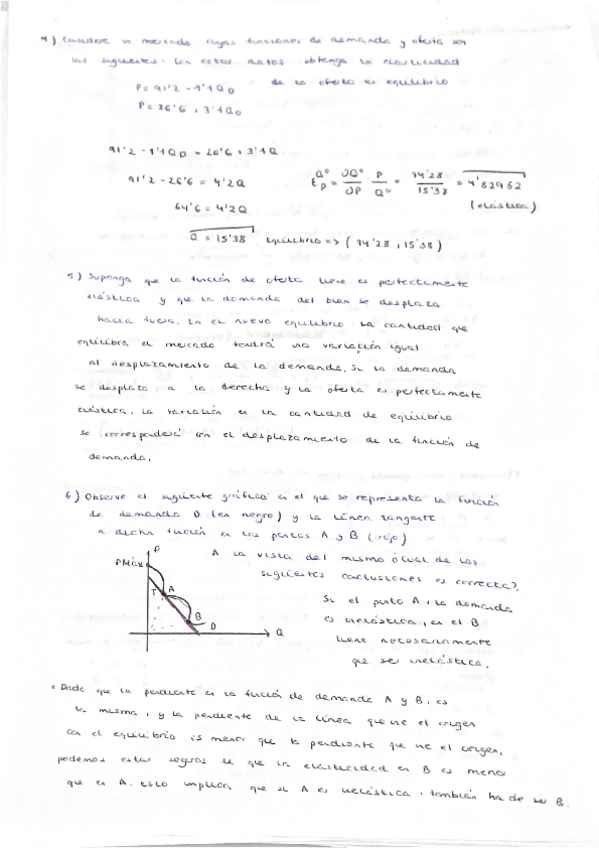 4) Considere un mercado cuyas funciones de demanda y oferta son
las siguientes. Con estos datos obtenga la elasticidad
de la oferta en equilibrio
P = 91'2 - 1'1QD
P = 26'6 + 3'1QO
91'2 - 1'1QD = 26'6 + 3'1Q
91'2 - 26'6 = 4'2Q
64'6 = 4'2Q
Q = 15'38 Equilibrio => (74'28, 15'38)
= 74'28 / 15'38 = 4'82952
(elástica)
5) Suponga que la función de oferta tiene es perfectamente
elástica y que la demanda del bien se desplaza
hacia fuera. En el nuevo equilibrio la cantidad que
equilibra el mercado tendrá una variación igual
al desplazamiento de la demanda. Si la demanda
se desplaza a la derecha y la oferta es perfectamente
elástica, la variación en la cantidad de equilibrio
se corresponderá con el desplazamiento de la función de
demanda.
6) Observe el siguiente gráfico en el que se representa la función
de demanda D (en negro) y la línea tangente
a dicha función en los puntos A y B (rojo)
A la vista del mismo ¿cual de las
siguientes conclusiones es correcta?
Si el punto A, la demanda
es inelástica, en el B
tiene necesariamente
que ser inelástica.
P
PMáx
T A
B
D
Q
• Dado que la pendiente en la función de demanda A y B, es
la misma, y la pendiente de la línea que une el origen
con el equilibrio es menor que la pendiente que une el origen,
podemos estar seguros de que la elasticidad en B es menor
que en A. Esto implica que si A es inelástica, también ha de ser B.